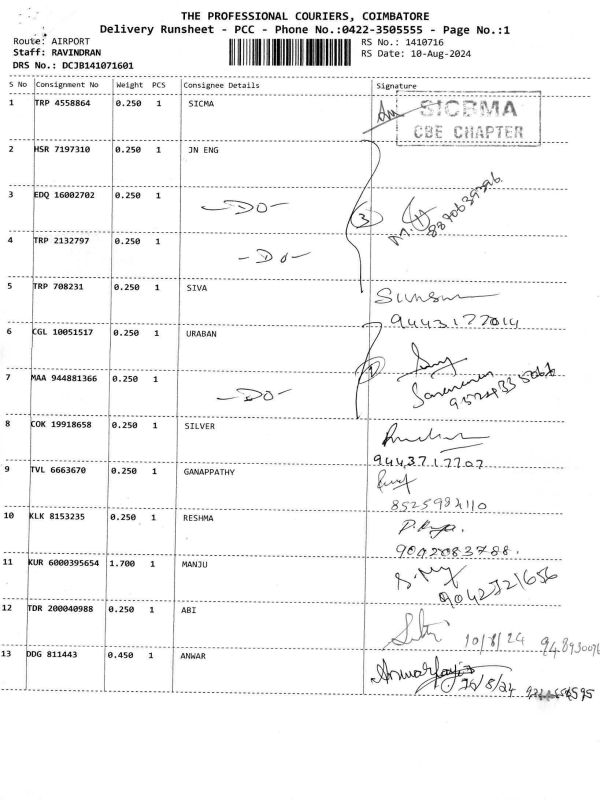 THE PROFESSIONAL COURIERS, COIMBATORE
Delivery Runsheet - PCC - Phone No.:0422-3505555 - Page No.:1
Route: AIRPORT RS No.: 1410716
Staff: RAVINDRAN RS Date: 10-Aug-2024
DRS No.: DCJB141071601
S No Consignment No Weight PCS Consignee Details Signature
1 TRP 4558864 0.250 1 SICMA
SICBMA
CBE CHAPTER
2 HSR 7197310 0.250 1 JN ENG
3 EDQ 16002702 0.250 1 -DO- 3
4 TRP 2132797 0.250 1 -DO-
5 TRP 708231 0.250 1 SIVA
9443177014
6 CGL 10051517 0.250 1 URABAN
7 MAA 944881366 0.250 1 -DO-
8 COK 19918658 0.250 1 SILVER
9443717707
9 TVL 6663670 0.250 1 GANAPPATHY
10 KLK 8153235 0.250 1 RESHMA
9042083788.
11 KUR 6000395654 1.700 1 MANJU
9042321656
12 TDR 200040988 0.250 1 ABI
10/8/24
13 DDG 811443 0.450 1 ANWAR